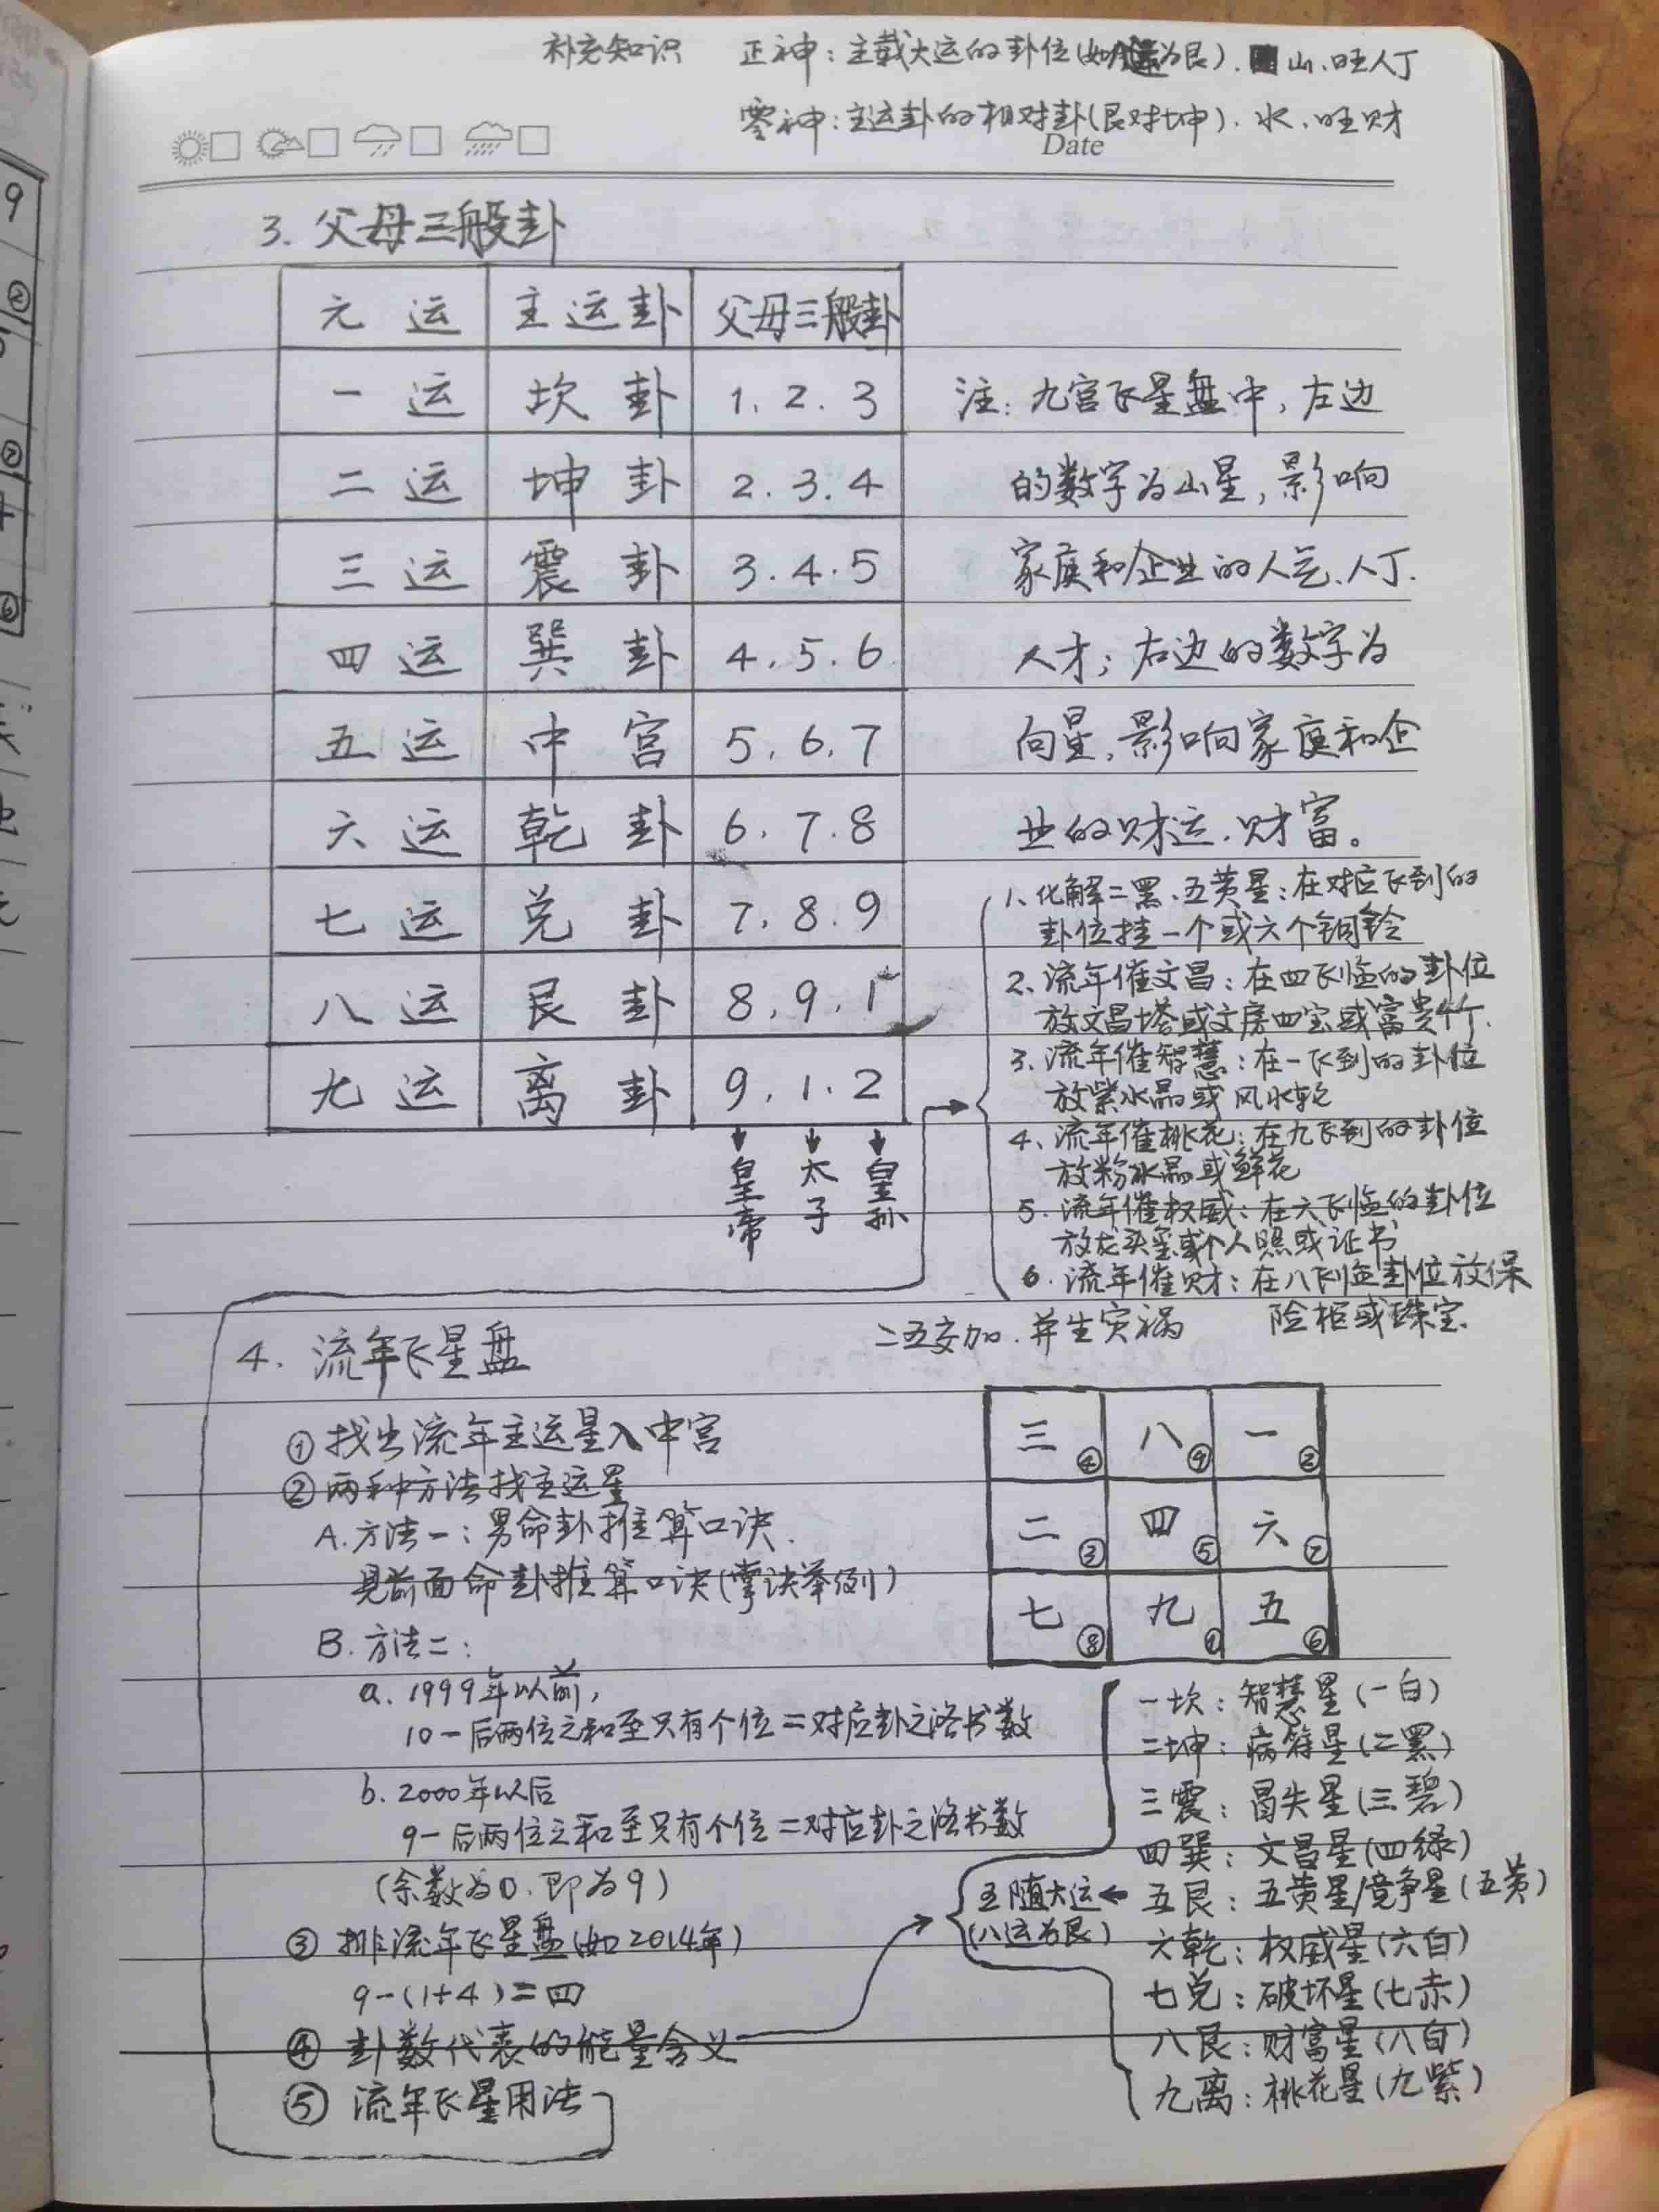 补充知识 正神：主载大运的卦位(如八运为艮).山.旺人丁
零神：主运卦的相对卦(艮对坤).水.旺财
Date
3. 父母三般卦
元运 主运卦 父母三般卦
一运 坎卦 1.2.3
二运 坤卦 2.3.4
三运 震卦 3.4.5
四运 巽卦 4.5.6
五运 中宫 5.6.7
六运 乾卦 6.7.8
七运 兑卦 7.8.9
八运 艮卦 8.9.1
九运 离卦 9.1.2
皇帝 太子 皇孙
注：九宫飞星盘中，左边
的数字为山星，影响
家庭和企业的人气、人丁.
人才；右边的数字为
向星，影响家庭和企
业的财运.财富。
1、化解二黑、五黄星：在对应飞到的
卦位挂一个或六个铜铃
2、流年催文昌：在四飞临的卦位
放文昌塔或文房四宝或富贵竹.
3、流年催智慧：在一飞到的卦位
放紫水晶或风水轮
4、流年催桃花：在九飞到的卦位
放粉水晶或鲜花
5.流年催权威：在六飞临的卦位
放龙头玺或个人照或证书
6.流年催财：在八飞临卦位放保
险柜或珠宝.
二五交加.并生灾祸
4. 流年飞星盘
①找出流年主运星入中宫
②两种方法找主运星
A.方法一：男命卦推算口诀.
见前面命卦推算口诀(掌诀举例)
B.方法二：
a. 1999年以前，
10－后两位之和至只有个位＝对应卦之洛书数
b. 2000年以后
9－后两位之和至只有个位＝对应卦之洛书数
(余数为0.即为9)
③ 排流年飞星盘(如2014年)
9－(1+4)＝四
④ 卦数代表的能量含义
⑤ 流年飞星用法
三④ 八⑨ 一②
二③ 四⑤ 六⑦
七⑧ 九① 五⑥
一坎：智慧星(一白)
二坤：病符星(二黑)
三震：冒失星(三碧)
四巽：文昌星(四绿)
五随大运←五艮：五黄星/竞争星(五黄)
(八运为艮)
六乾：权威星(六白)
七兑：破坏星(七赤)
八艮：财富星(八白)
九离：桃花星(九紫)